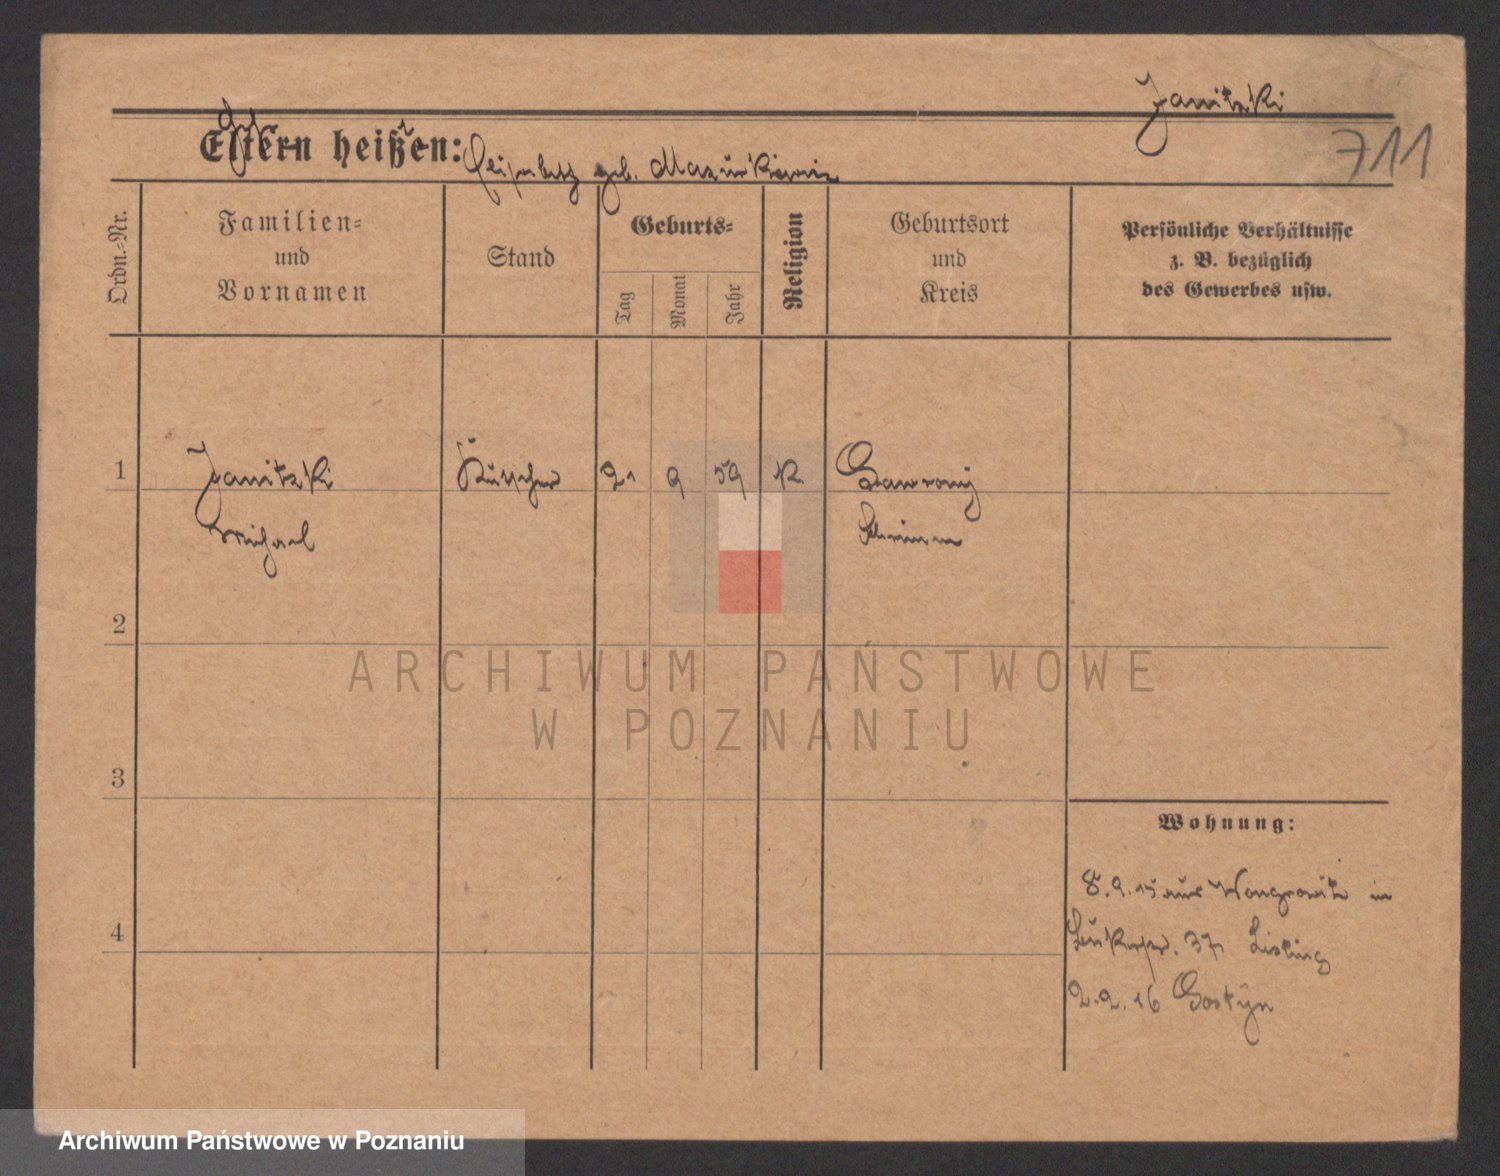 Janitzki
711
Eltern heißen:
geb. Mazurkiewicz
Ordn.-Nr.
Familien-
und
Vornamen
Stand
Geburts-
Tag
Monat
Jahr
Religion
Geburtsort
und
Kreis
Persönliche Verhältnisse
z. B. bezüglich
des Gewerbes usw.
1
Janitzki
Kutscher
21
9
59
K
Gawrony
Michael
Schrimm
2
ARCHIWUM PAŃSTWOWE
W POZNANIU
3
4
Wohnung:
8.9.15 aus Wongrowitz in
37
2.2.16 Gostyn
Archiwum Państwowe w Poznaniu